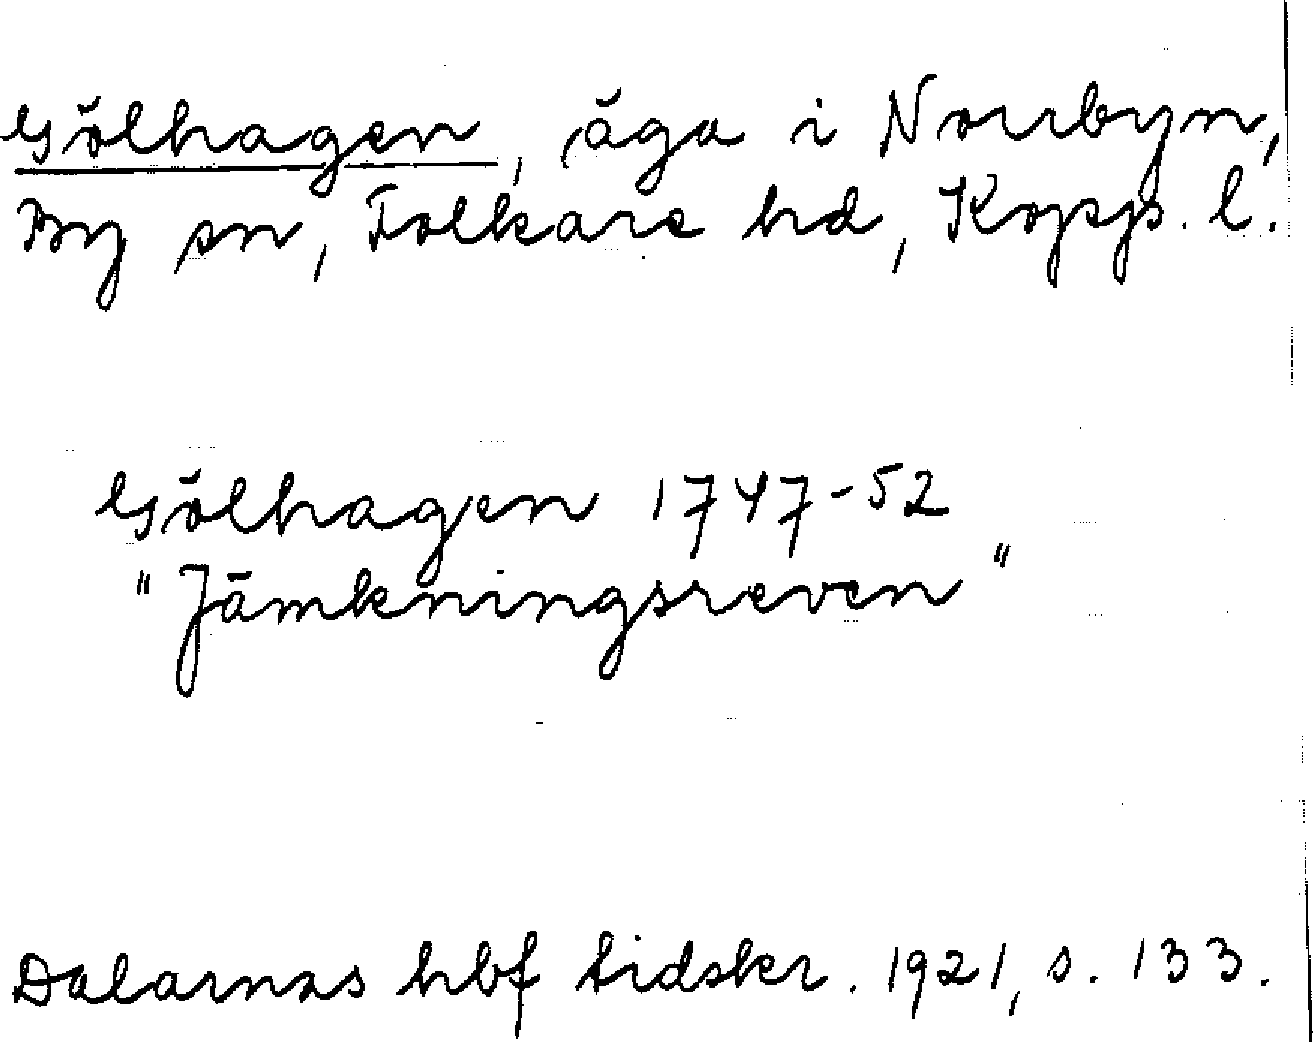 Gölhagen, äga i Norrbyn,
By sn, Folkare hd, Kopps. l.
Gölhagen 1747-52
"Jämkningsreven"
Dalarnas hbf tidskr. 1921, s. 133.